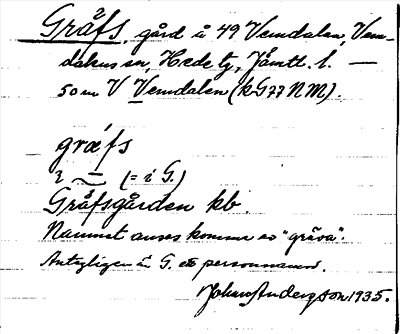 Gräfs, gård å 49 Vemdalen, Vem-
dalens sn, Hede tg, Jämtl. l. —
50 m V Vemdalen (kG77NM).
græfs
(= i G.)
Gräfsgården kb.
Namnet anses komma av "gräva".
Antagligen är G. ett personnamn.
Johan Anderzson 1935.